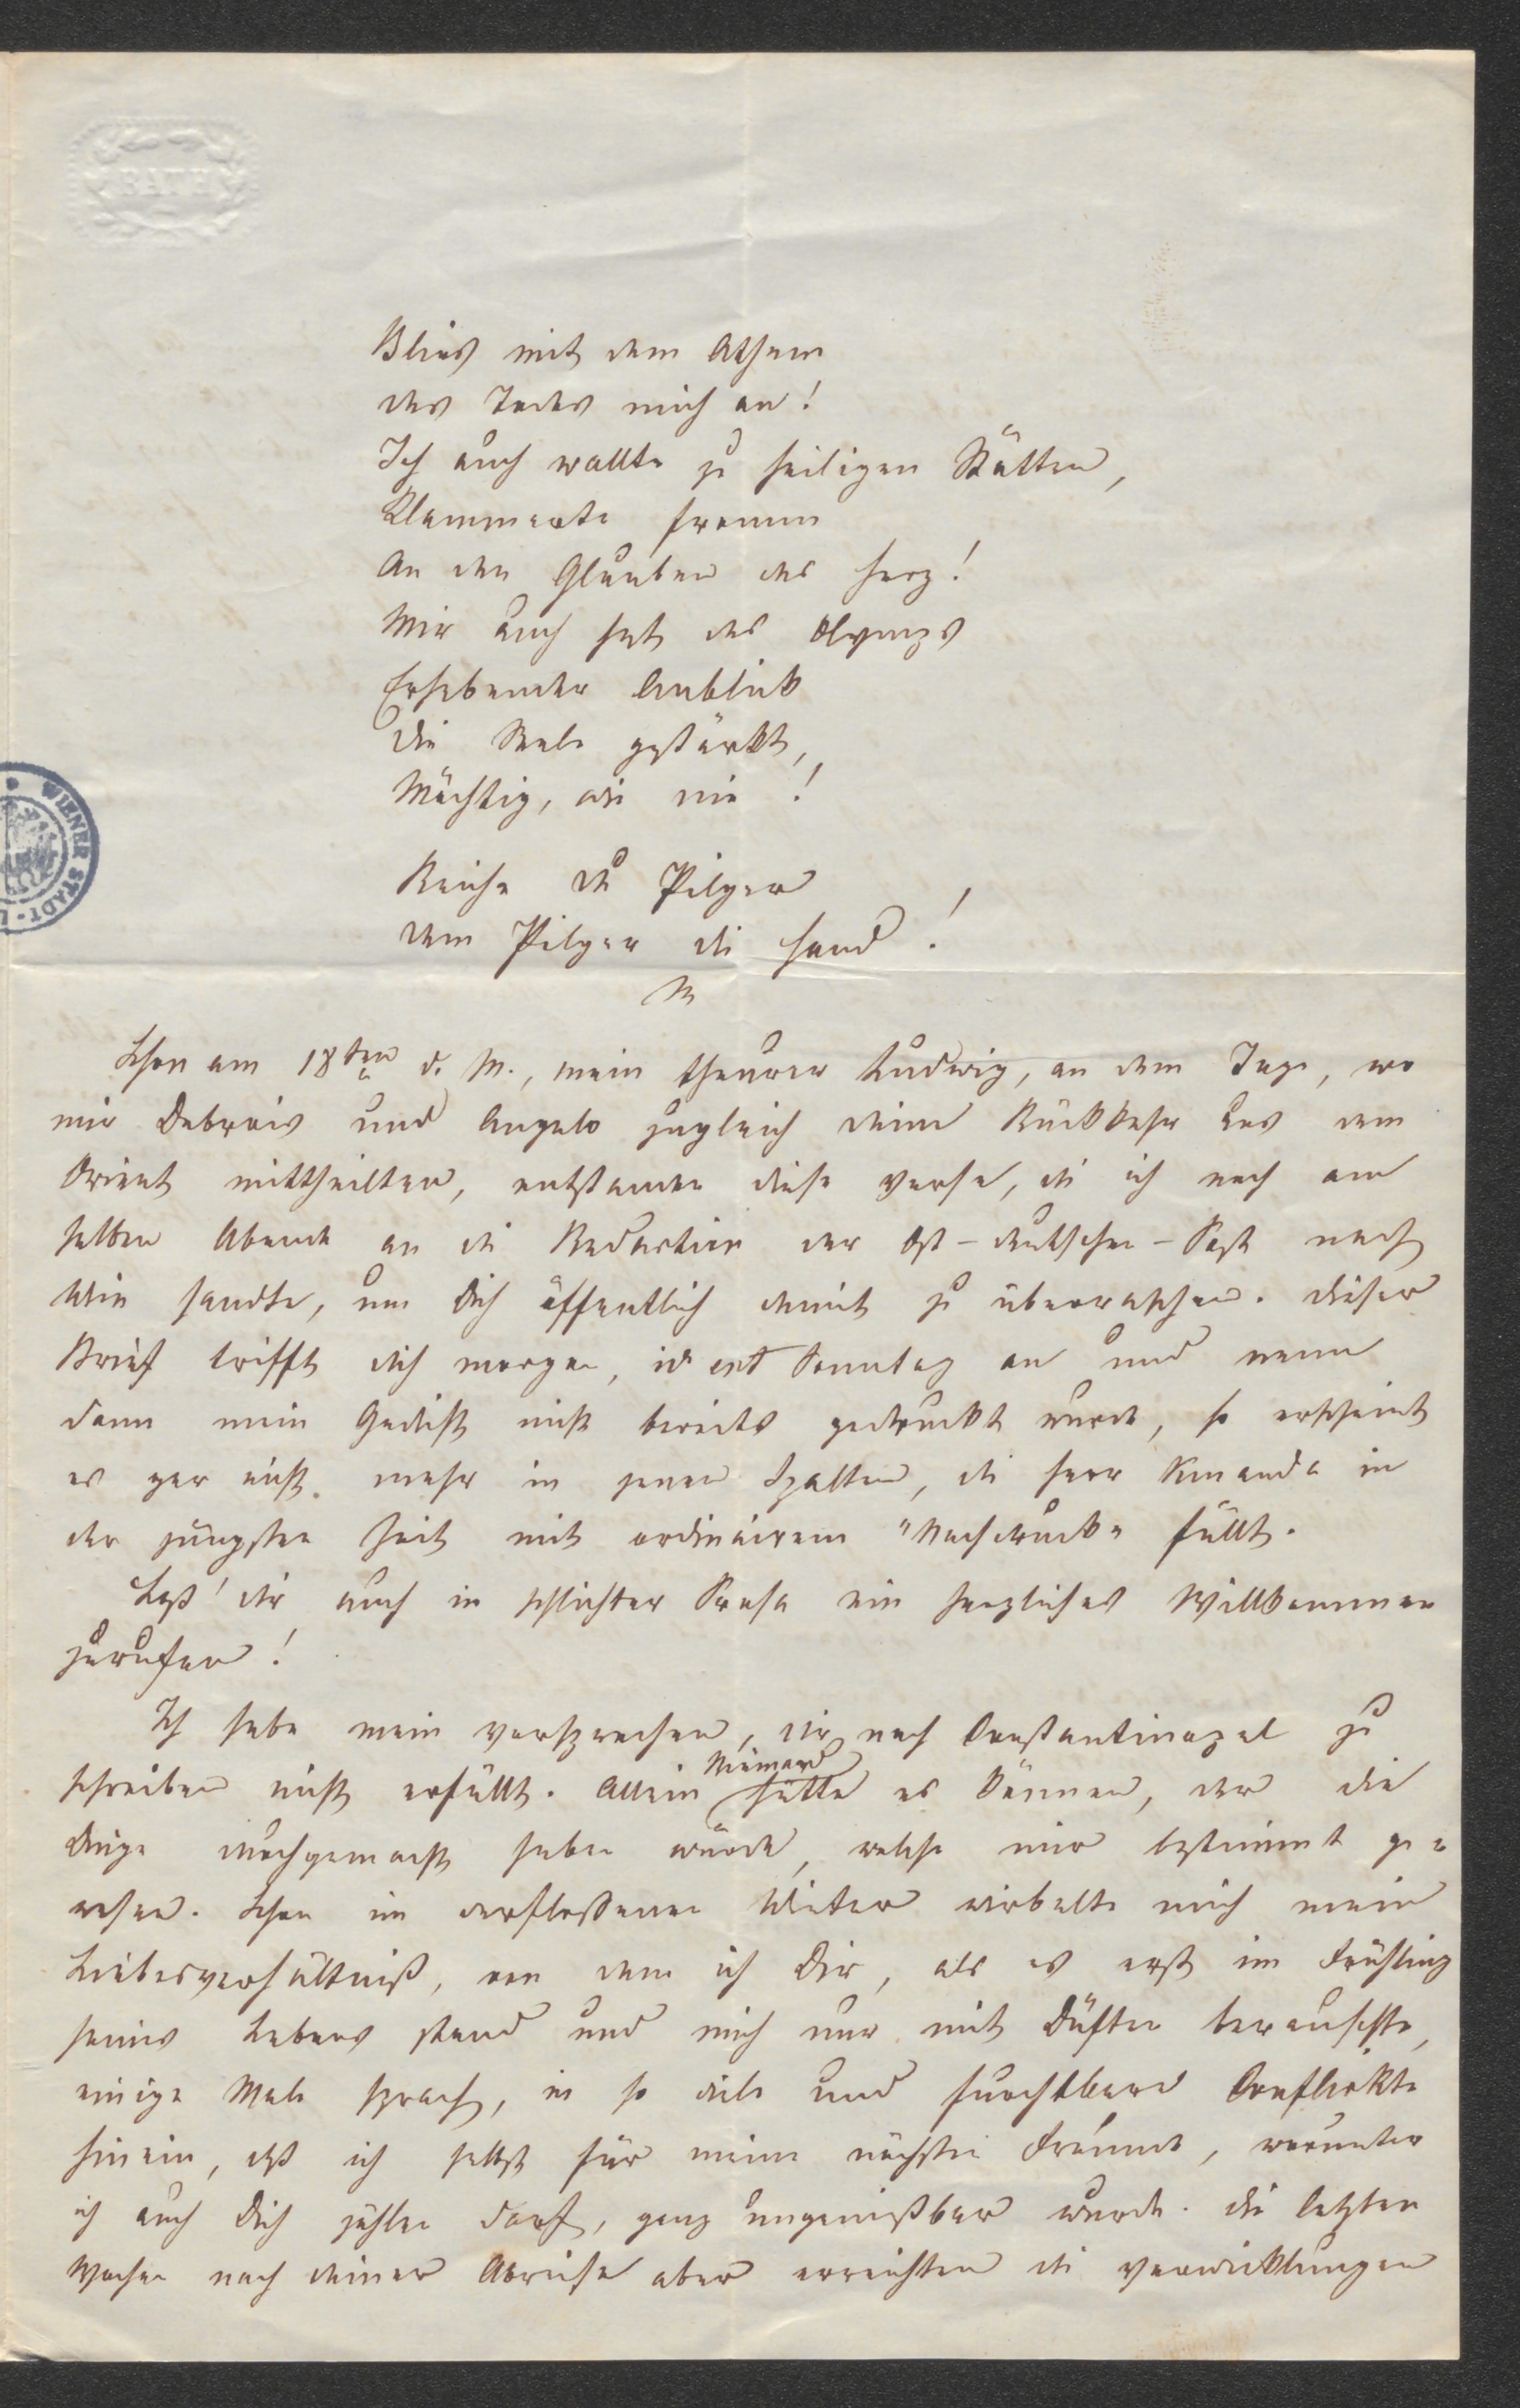 BATH
Blies mit dem Athem
des Todes mich an!
Ich auch wallte zu heiligen Stätten,
Klammerte fromm
An den Glauben das Herz!
Mir auch hat des Olymps
Erhebender Anblick
Die Seele gestärkt,
Mächtig, wie nie!
Reiche der Pilger
dem Pilger die Hand!
WIENER STADT-
Schon am 18ten d. M., mein theurer Ludwig, an dem Tage, wo
mir Debrois und Angelo zugleich deine Rückkehr aus dem
Orient mittheilten, entstanden diese Verse, die ich noch am
selben Abende an die Redaction der Ost-deutschen-Post nach
Wien sandte, um Dich öffentlich damit zu überraschen. Dieser
Brief trifft dich morgen, id est Sonntag an und wenn
dann mein Gedicht nicht bereits gedruckt wurde, so erscheint
es gar nicht mehr in jenen Spalten, die Herr Kuranda in
der jüngsten Zeit mit ordinairem "Nachdruck" füllt.
Laß' dir auch in schlichter Prosa ein herzliches Willkommen
zurufen!
Ich habe mein Versprechen, dir nach Constantinopel zu
schreiben nicht erfüllt. Allein Niemand hätte es können, der die
Dinge durchgemacht haben würde, welche mir bestimmt ge-
wesen. Schon im verflossenen Winter wirbelte mich mein
Liebesverhältniß, von dem ich Dir, als es erst im Frühling
seines Lebens stand und mich nur mit Düften berauschte,
einige Male sprach, in so viele und furchtbare Conflickte
hinein, daß ich selbst für meine nächsten Freunde, worunter
ich auch Dich zählen darf, ganz ungenießbar wurde. Die letzten
Wochen nach deiner Abreise aber erreichten die Verwicklungen